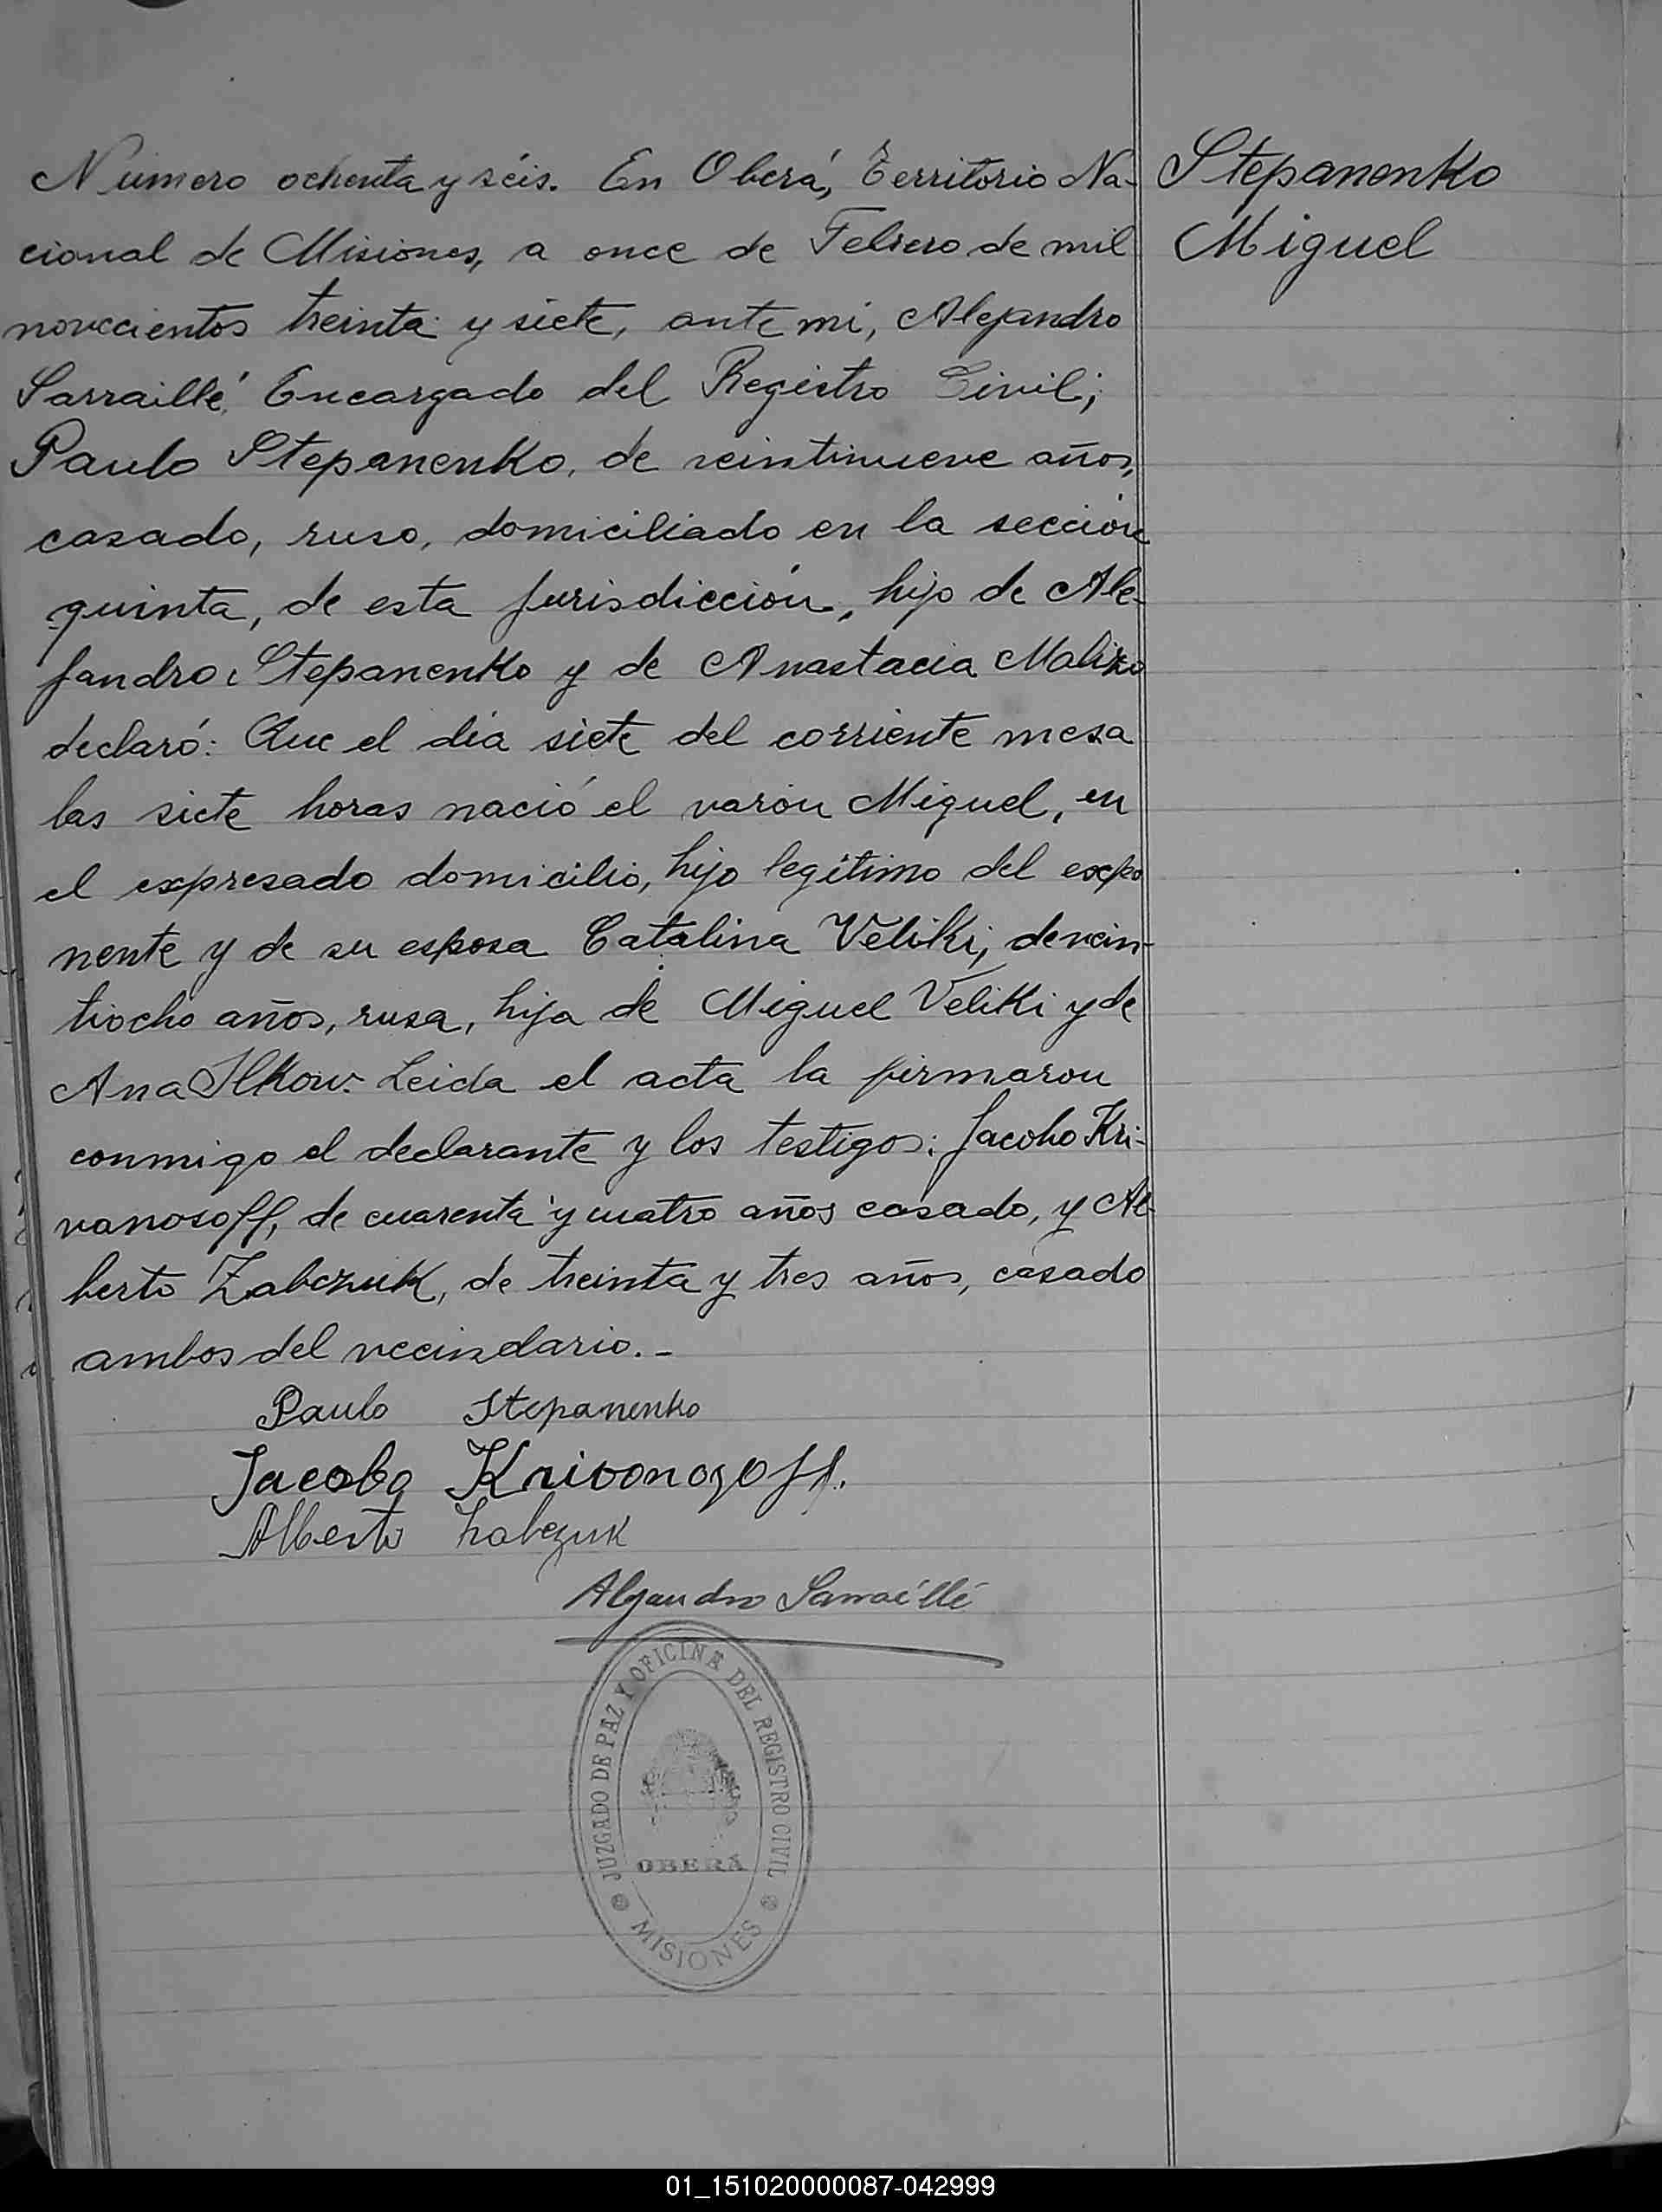 Número ochenta y séis. En Oberá, Territorio Na-
cional de Misiones, a once de Febrero de mil
novecientos treinta y siete, ante mi, Alejandro
Sarraillé, Encargado del Registro Civil;
Paulo Stepanenko, de veintinueve años,
casado, ruso, domiciliado en la sección
quinta, de esta jurisdicción, hijo de Ale-
jandro Stepanenko y de Anastacia
declaró: Que el día siete del corriente mes a
las siete horas nació el varón Miguel, en
el expresado domicilio, hijo legítimo del expo
nente y de su esposa Catalina Veliki, de vein-
tiocho años, rusa, hija de Miguel Veliki y de
Ana Ilkow. Leida el acta la firmaron
conmigo el declarante y los testigos: Jacobo Kri-
vanosoff, de cuarenta y cuatro años casado, y Al-
berto Zabczuk, de treinta y tres años, casado
ambos del vecindario.-
Paulo Stepanenko
Jacobo Krivonozoff.
Alberto Zabczuk
Alejandro Sarraillé
JUZGADO DE PAZ Y OFICINA DEL REGISTRO CIVIL
OBERÁ
MISIONES
Stepanenko
Miguel
01_151020000087-042999